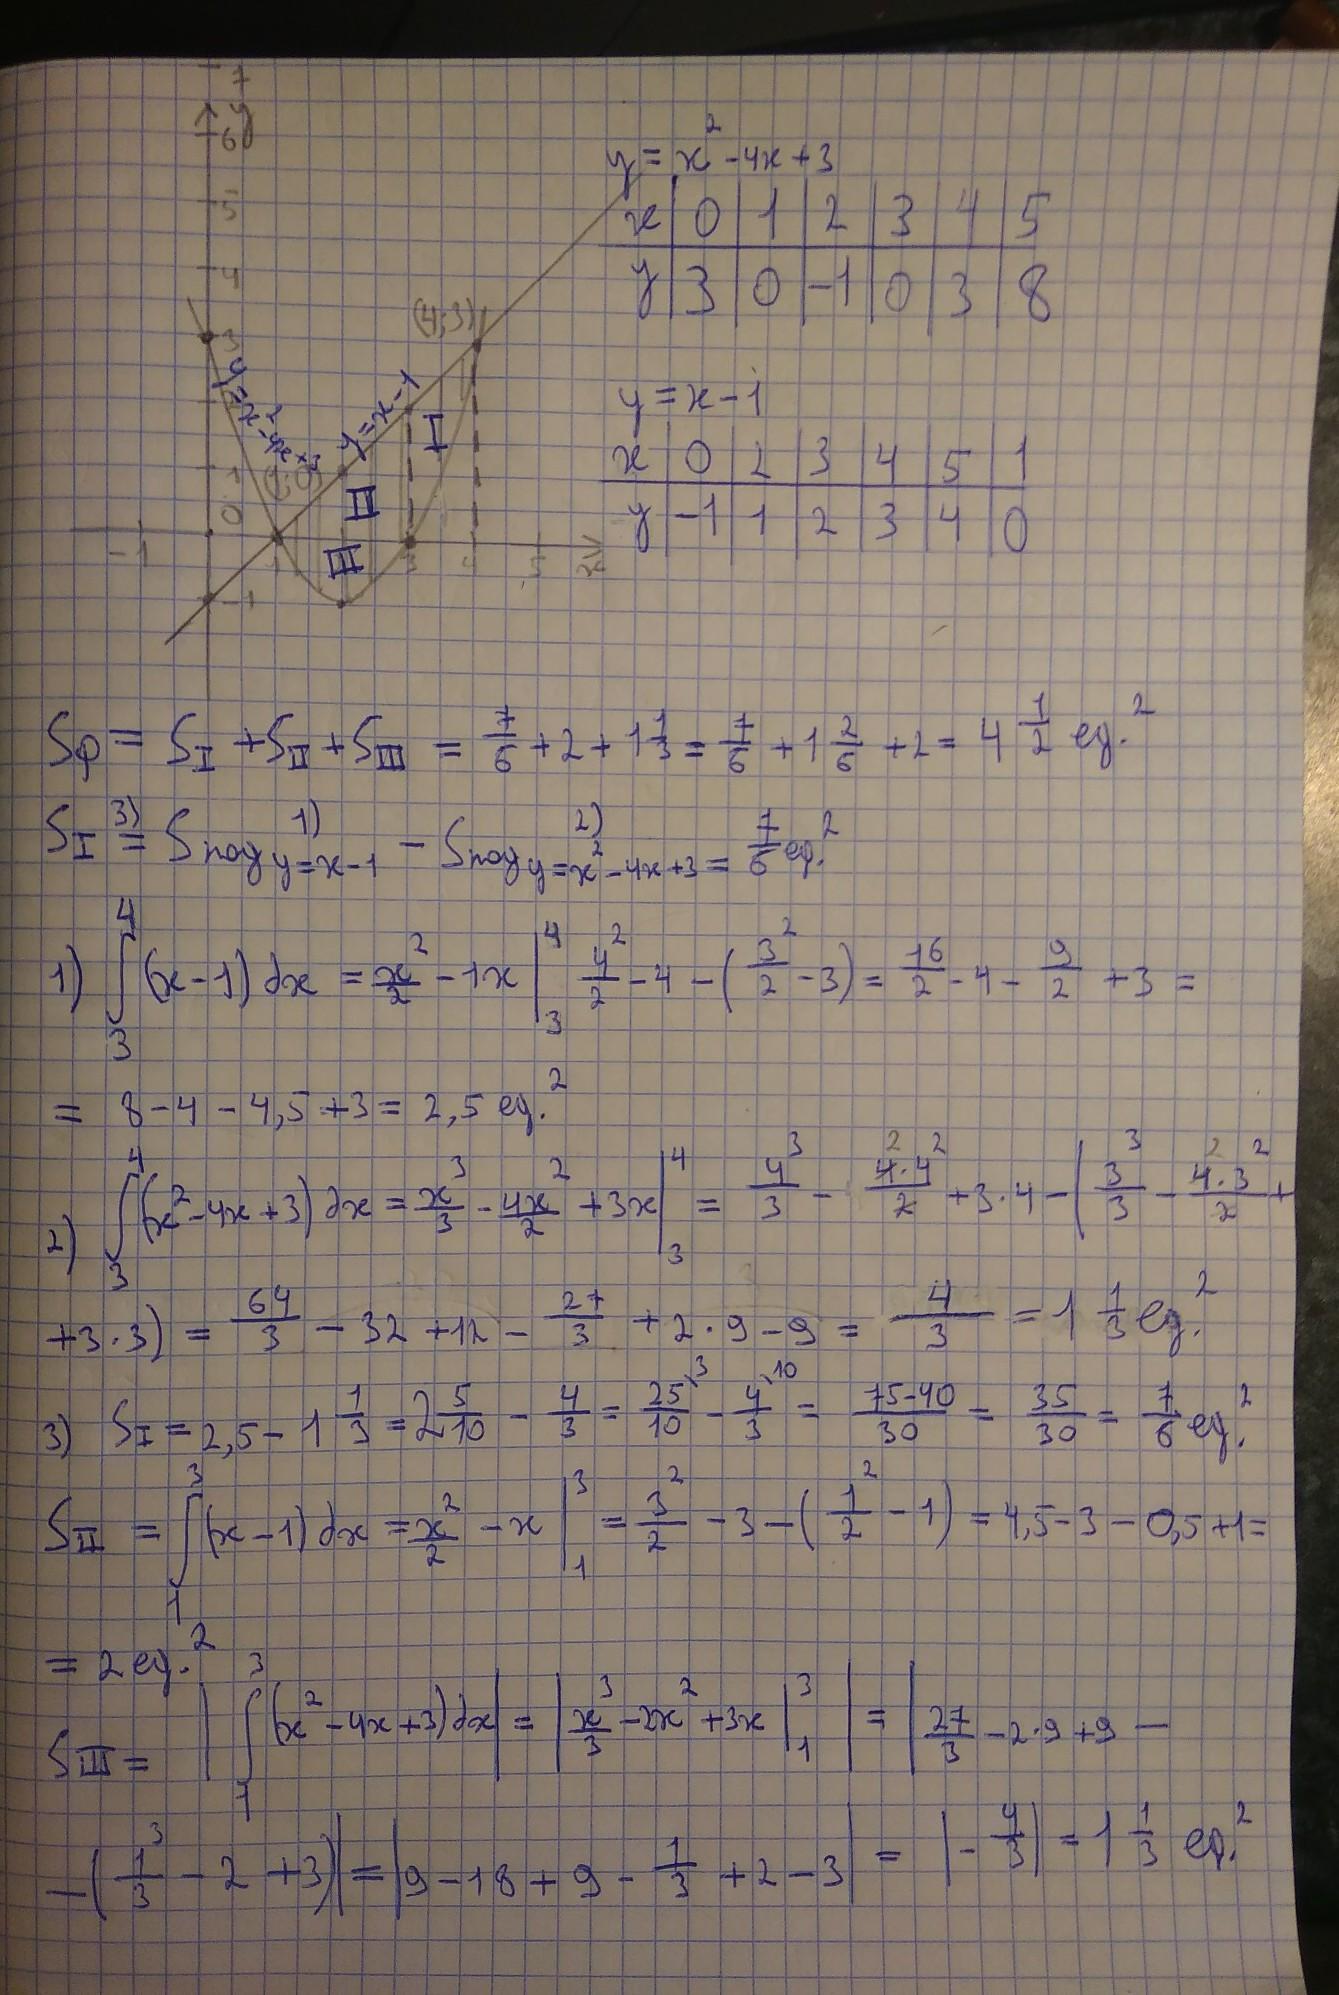 7
y
6
5
4
3
1
0
-1 1 3 4 5 x
-1
(4;3)
(1;0)
y=x²-4x+3
y=x-1
I
II
III
y = x² - 4x + 3
x | 0 | 1 | 2 | 3 | 4 | 5
y | 3 | 0 | -1 | 0 | 3 | 8
y = x - 1
x | 0 | 2 | 3 | 4 | 5 | 1
y | -1 | 1 | 2 | 3 | 4 | 0
Sф = S_I + S_II + S_III = 7/6 + 2 + 1 1/3 = 7/6 + 1 2/6 + 2 = 4 1/2 ед.²
S_I =³⁾ Sпод y=x-1 ¹⁾ - Sпод y=x²-4x+3 ²⁾ = 7/6 ед.²
1) ∫₃⁴ (x-1) dx = x²/2 - 1x |₃⁴ 4²/2 - 4 - (3²/2 - 3) = 16/2 - 4 - 9/2 + 3 =
= 8 - 4 - 4,5 + 3 = 2,5 ед.²
2) ∫₃⁴ (x² - 4x + 3) dx = x³/3 - 4x²/2 + 3x |₃⁴ = 4³/3 - 4·4²/2 + 3·4 - (3³/3 - 4·3²/2 +
+3·3) = 64/3 - 32 + 12 - 27/3 + 2·9 - 9 = 4/3 = 1 1/3 ед.²
3) S_I = 2,5 - 1 1/3 = 2 5/10 - 4/3 = 25/10 ·3 - 4/3 ·10 = 75-40/30 = 35/30 = 7/6 ед.²
S_II = ∫₁³ (x-1) dx = x²/2 - x |₁³ = 3²/2 - 3 - (1²/2 - 1) = 4,5 - 3 - 0,5 + 1 =
= 2 ед.²
S_III = | ∫₁³ (x² - 4x + 3) dx | = | x³/3 - 2x² + 3x |₁³ | = | 27/3 - 2·9 + 9 -
- (1³/3 - 2 + 3) | = | 9 - 18 + 9 - 1/3 + 2 - 3 | = | - 4/3 | = 1 1/3 ед.²